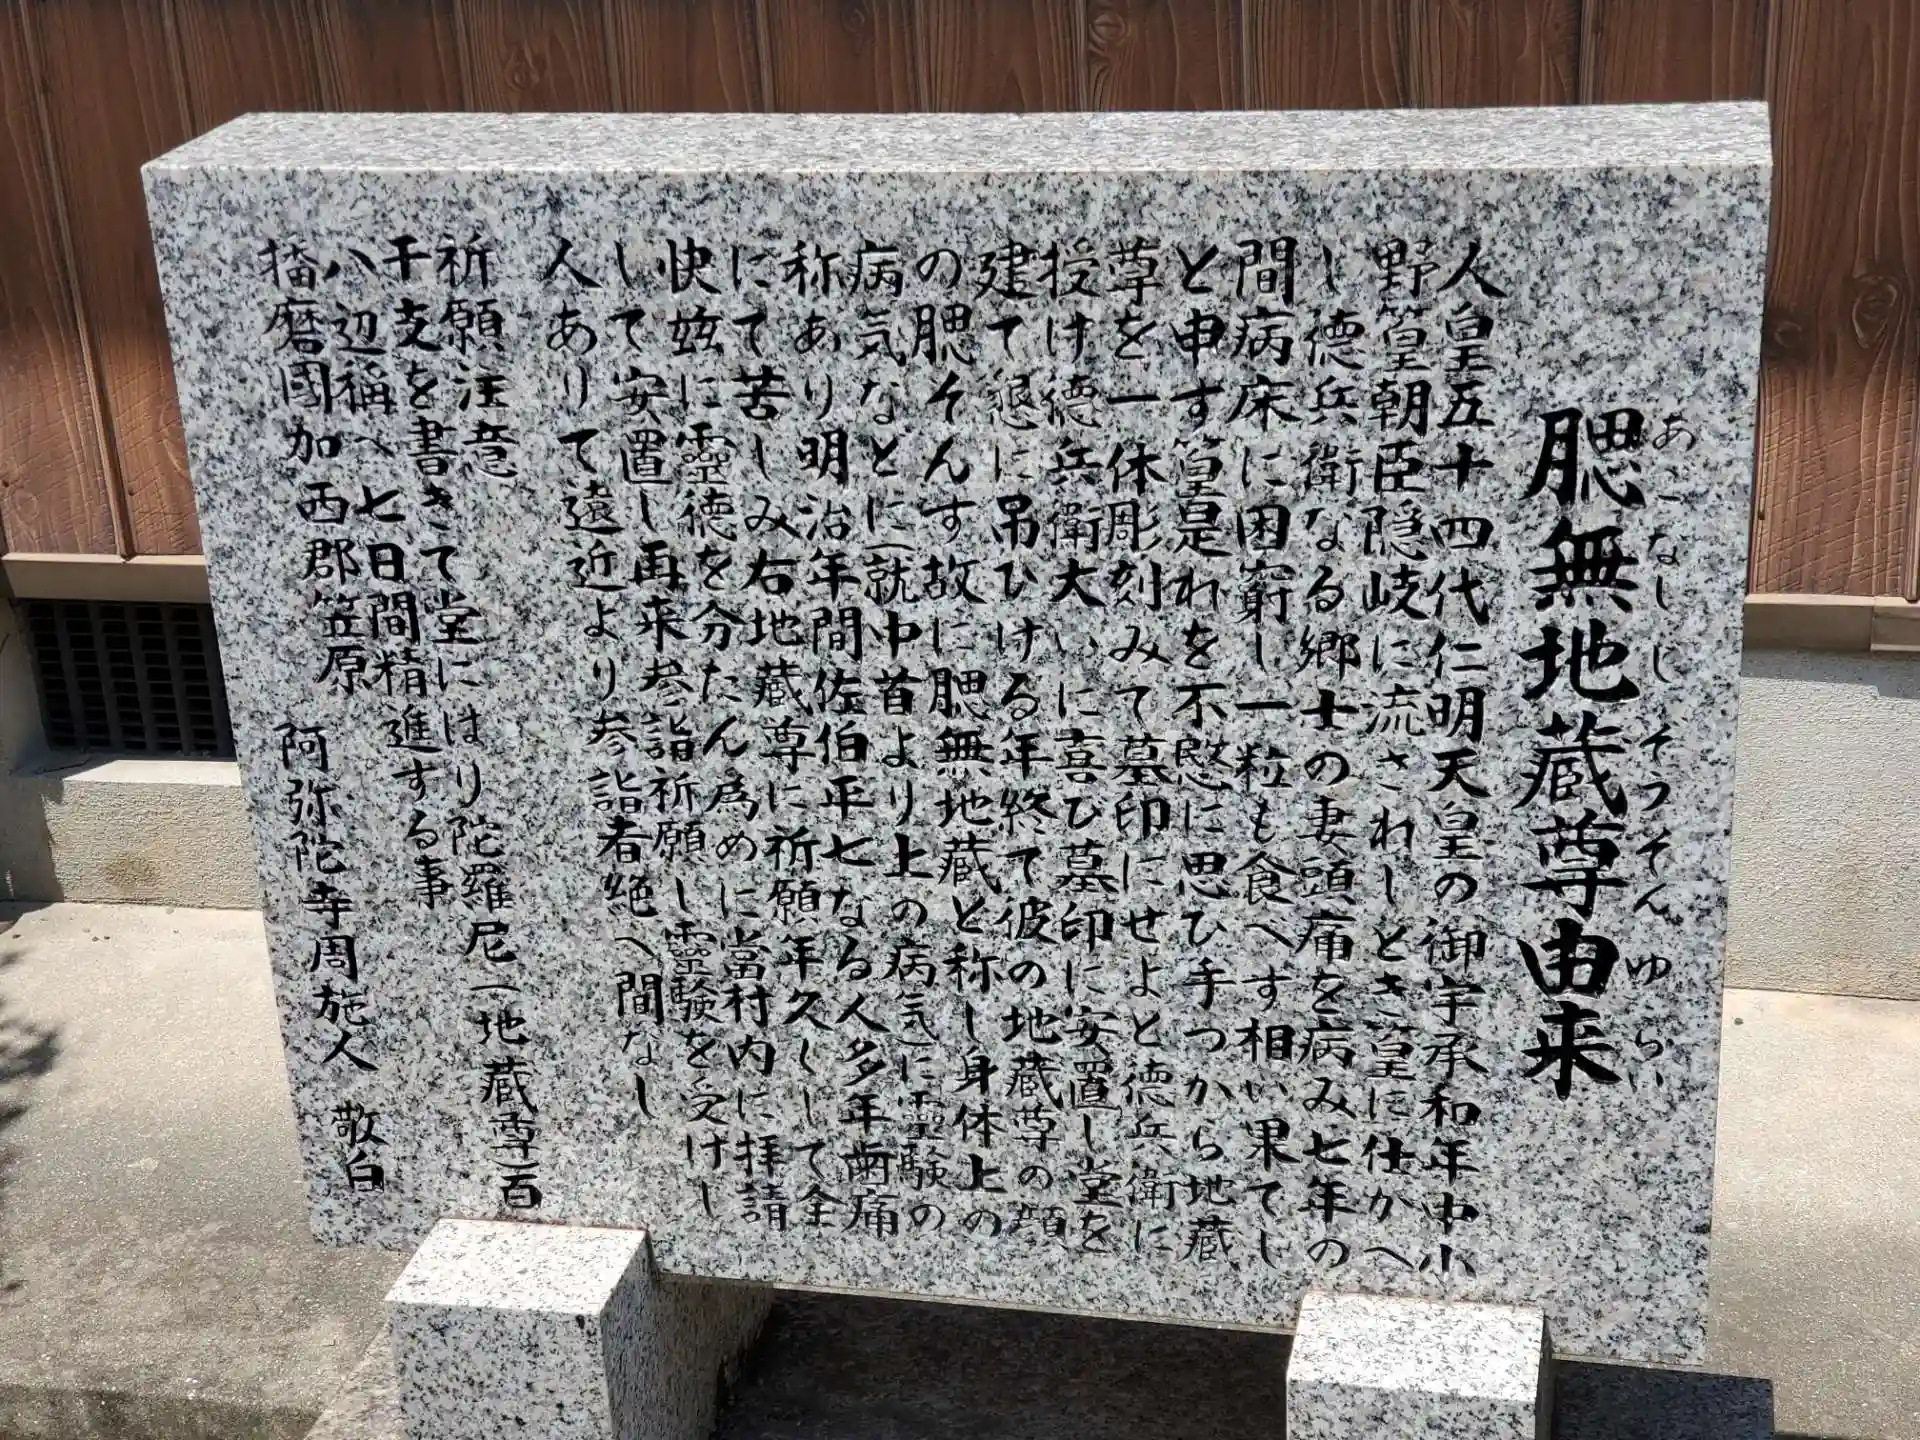 腮無地蔵尊由来
あごなしじぞうそんゆらい
人皇五十四代仁明天皇の御宇承和年中小
野篁朝臣隠岐に流されしとき篁に仕かへ
し德兵衛なる郷士の妻頭痛を病み七年の
間病床に困窮し一粒も食へす相い果てし
と申す篁是れを不愍に思ひ手つから地蔵
尊を一体彫刻みて墓印にせよと德兵衛に
授け德兵衛大いに喜ひ墓印に安置し堂を
建て懇に吊ひける年終て彼の地蔵尊の顔
の腮そんす故に腮無地蔵と称し身体上の
病気なとに(就中首より上の病気)に霊験の
称あり明治年間佐伯平七なる人多年歯痛
にて苦しみ右地蔵尊に祈願年久くして全
快玆に霊德を分たん為めに當村内に拝請
して安置し再来参詣祈願し霊験を受けし
人ありて遠近より参詣者絶へ間なし
祈願注意
干支を書きて堂にはり陀羅尼(地蔵尊)百
八辺稱へ七日間精進する事
播磨國加西郡笠原 阿弥陀寺周施人 敬白